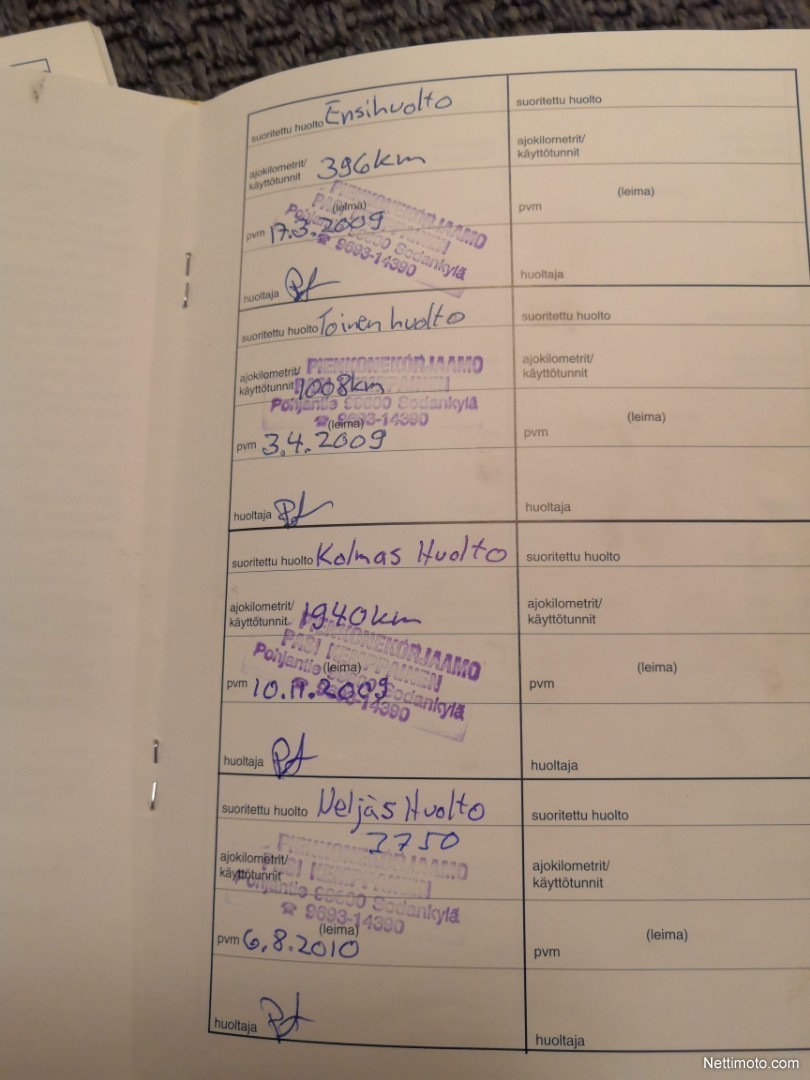 suoritettu huolto Ensihuolto
ajokilometrit/
käyttötunnit 396km
PIENKONEKORJAAMO
PASI KEMPPAINEN
(leima)
Pohjantie 99600 Sodankylä
pvm 17.3.2009
☎ 9693-14390
huoltaja
suoritettu huolto Toinen huolto
ajokilometrit/
PIENKONEKORJAAMO
käyttötunnit 1008km
PASI KEMPPAINEN
Pohjantie 99600 Sodankylä
☎ 9693-14390
(leima)
pvm 3.4.2009
huoltaja
suoritettu huolto Kolmas Huolto
ajokilometrit/
käyttötunnit 1940km
PIENKONEKORJAAMO
PASI KEMPPAINEN
Pohjantie 99600 Sodankylä
(leima)
pvm 10.11.2009
☎ 9693-14390
huoltaja
suoritettu huolto Neljäs Huolto
3750
PIENKONEKORJAAMO
ajokilometrit/
käyttötunnit
PASI KEMPPAINEN
Pohjantie 99600 Sodankylä
☎ 9693-14390
(leima)
pvm 6.8.2010
huoltaja
suoritettu huolto
ajokilometrit/
käyttötunnit
(leima)
pvm
huoltaja
suoritettu huolto
ajokilometrit/
käyttötunnit
(leima)
pvm
huoltaja
suoritettu huolto
ajokilometrit/
käyttötunnit
(leima)
pvm
huoltaja
suoritettu huolto
ajokilometrit/
käyttötunnit
(leima)
pvm
huoltaja
Nettimoto.com